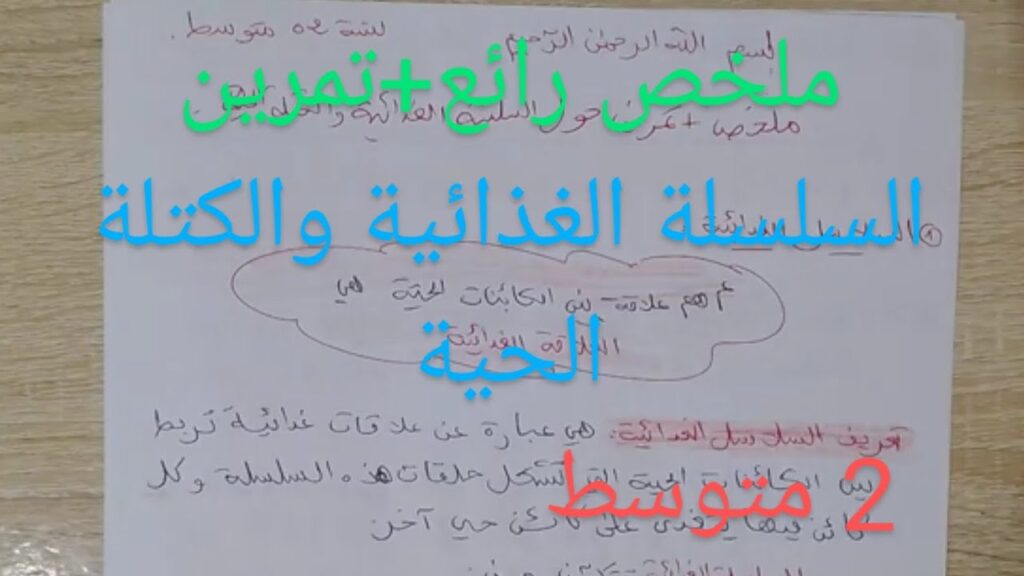 بسم الله الرحمن الرحيم
سنة 02 متوسط.
ملخص رائع+تمرين
ملخص + تمرين حول السلسلة الغذائية والكتلة
السلسلة الغذائية والكتلة
الحية
أهم علاقة بين الكائنات الحية هي
العلاقة الغذائية
تعريف السلاسل الغذائية: هي عبارة عن علاقات غذائية تربط
بين الكائنات الحية التي تشكل حلقات هذه السلسلة وكل
كائن فيها يتغذى على كائن حي آخر
2 متوسط